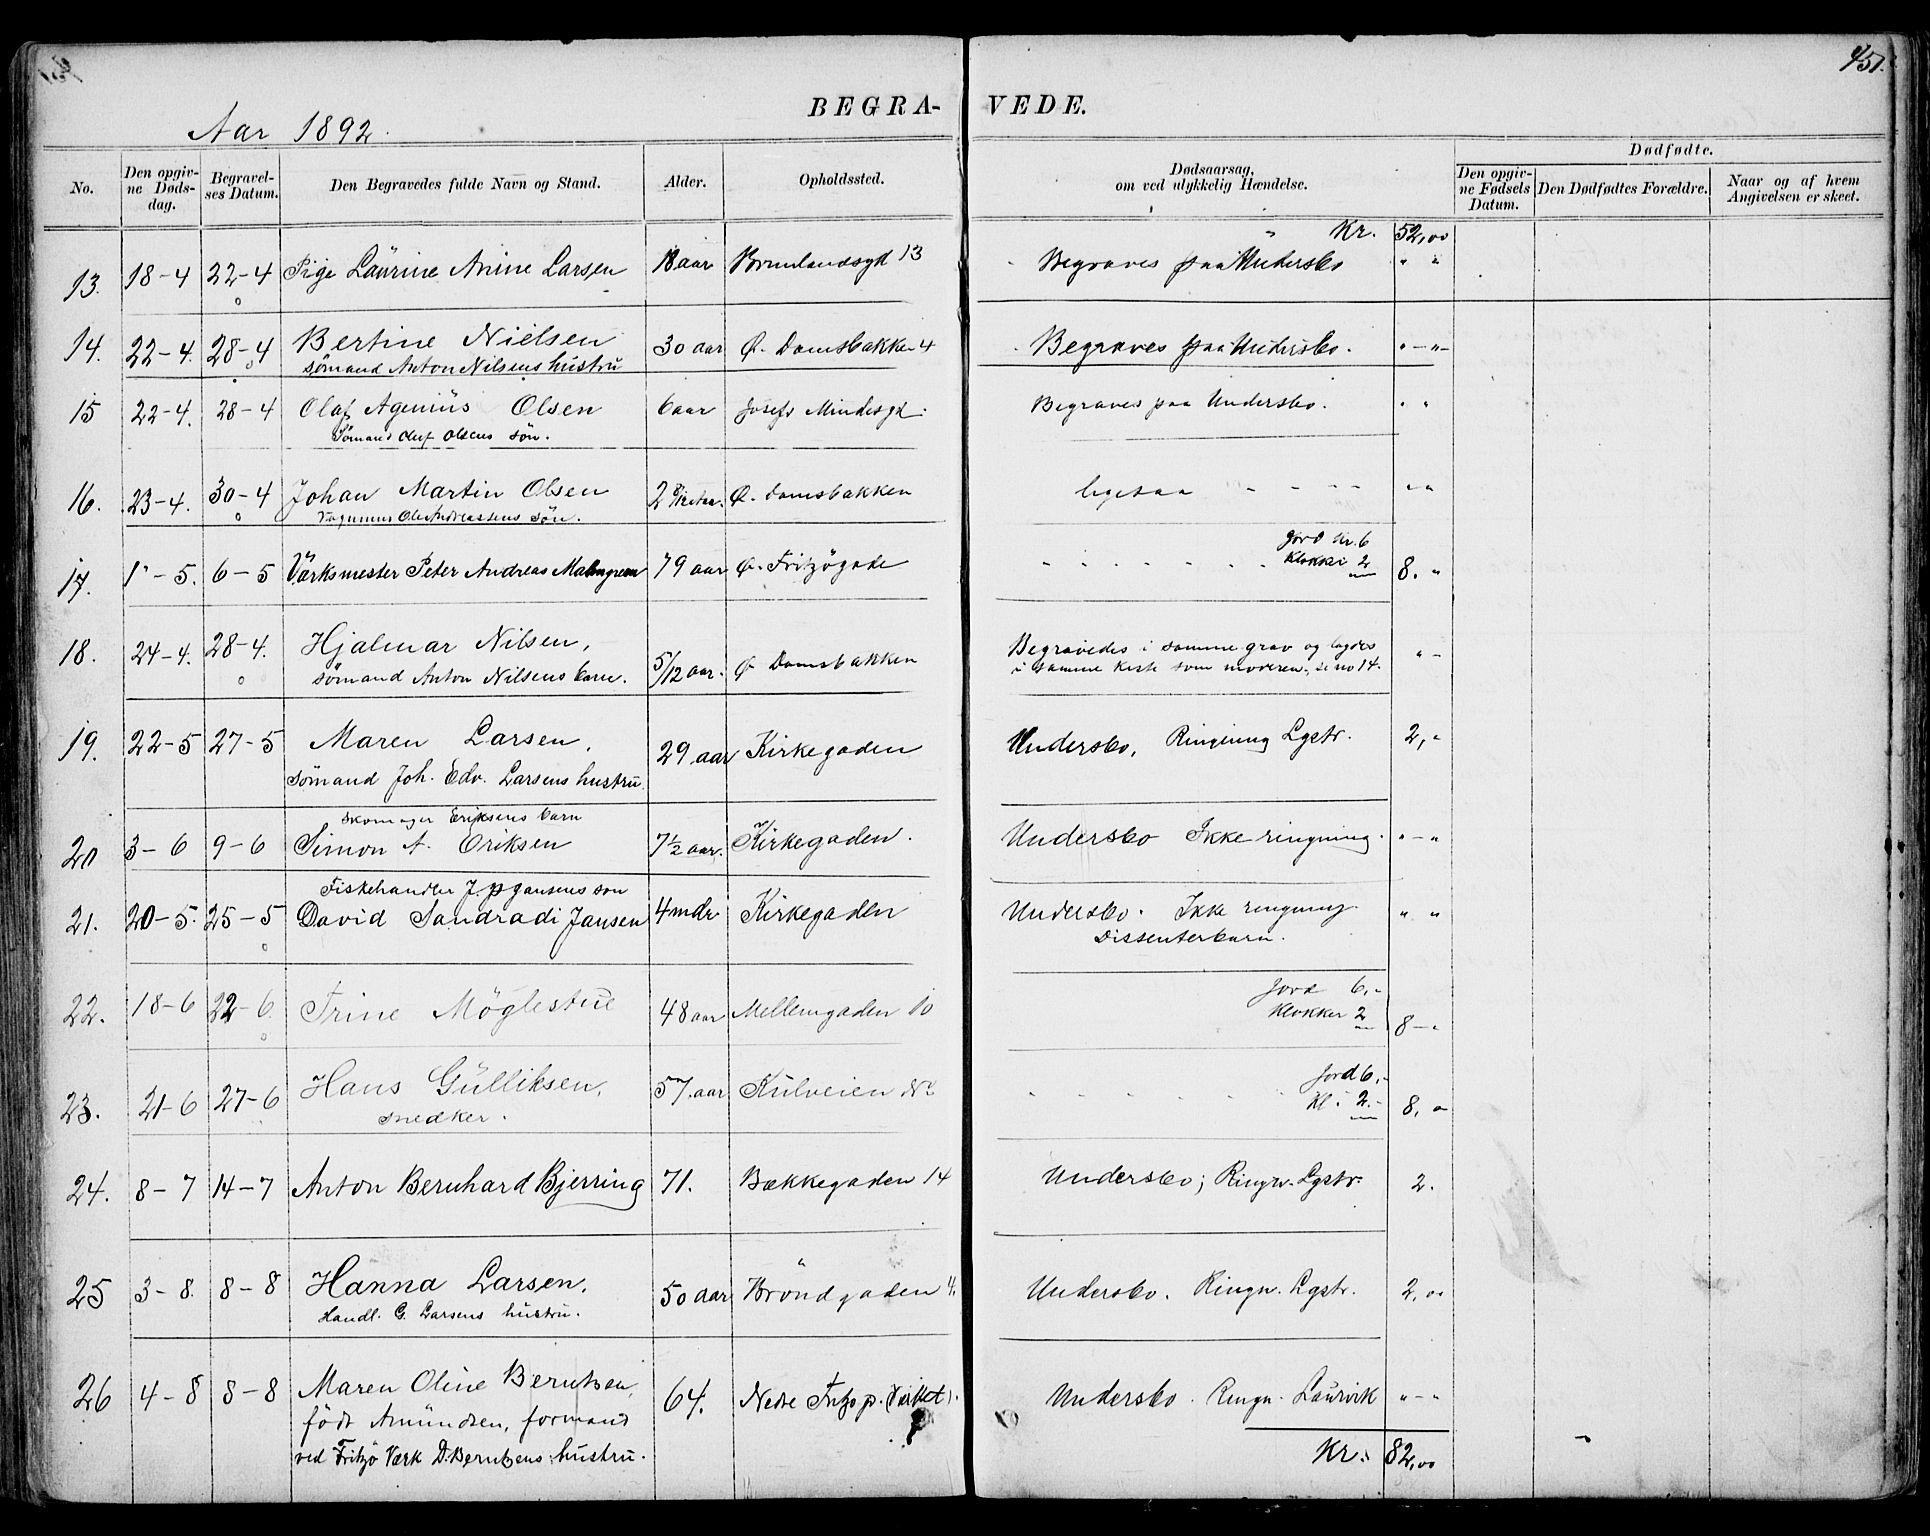 451.
BEGRA- VEDE.
Aar 1892.
No. Den opgiv- Begravel- Den Begravedes fulde Navn og Stand. Alder. Opholdssted. Dødsaarsag, Dødfødte.
ne Døds- ses Datum. om ved ulykkelig Hændelse. Den opgiv- Den Dødfødtes Forældre. Naar og af hvem
dag. ne Fødsels Angivelsen er skeet.
Datum.
Kr. 52,00
13. 18-4 22-4 Pige Laürine Anine Larsen aar 13 Begraves paa Undersbo " "
14. 22-4. 28-4 Bertine Nielsen 30 aar Ø. Damsbakken 4 Begraves paa Undersbo. "-"-
sömand Anton Nilsens hustrü
15 22-4. 28-4 Olaf Ageniüs Olsen 6 aar Josefs Mindesgd. Begraves paa Undersbo. " "
Sömand Oluf Olsens sön.
16. 23-4. 30-4 Johan Martin Olsen 2 Ø. Damsbakken ligesaa " - - - - "
Ole Andreassens sön.
Jord Kr. 6
17. 1-5. 6-5 Värksmester Peter Andreas Malmgreen 79 aar Ø. Fritzögade Klokker 2 8. "
18. 24-4. 28-4. Hjalmar Nilsen, 5/12 aar. Ø Damsbakken Begravedes i samme grav og lagdes " -
sömand Anton Nilsens barn. i samme kiste som moderen, se no 14.
19. 22-5 27-5 Maren Larsen, 29 aar Kirkegaden Undersbo, Ringning Lgstr. 2,"
sömand Joh. Edv. Larsens hustrü.
skomager Eriksens barn
20 3-6 9-6 Simon A. Eriksen 7½ aar. Kirkegaden. Undersbo Ikke ringning. "-"
Fiskehandler J. Jansens son
21. 20-5. 25-5 David Sandradi Jansen 4 mdr Kirkegaden Undersbo. Ikke ringning. " "
Dissenterbarn.
Jord 6,-
22. 18-6 22-6. Trine Möglestüe 48 aar Mellemgaden 10 Klokker 2 8-"
Jord 6,-
23. 21-6 27-6 Hans Gülliksen, 57. aar Külveien Kl. 2.- 8,"
snedker.
24. 8-7 14-7 Anton Bernhard Bjerring 71. Bækkegaden 14 Undersbo; Ringn. Lgstr. 2.
25 3-8. 8-8 Hanna Larsen, 50 aar Bröndgaden 4. Undersbo. Ringn. Lgstr. 2,00
Handl. G. Larsens hüstrü.
26 4-8 8-8 Maren Oline Berntsen, 64. Nedre (Værket). Undersbo. Ringn. Laürvik "-"
född Amündsen, formand
ved Fritzö Værk D. Berntsens hüstrü.
Kr. 82,00